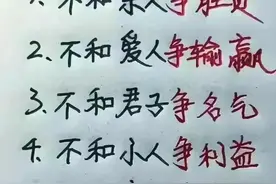 1、不和亲人争胜负
2、不和爱人争输赢
3、不和君子争名气
4、不和小人争利益